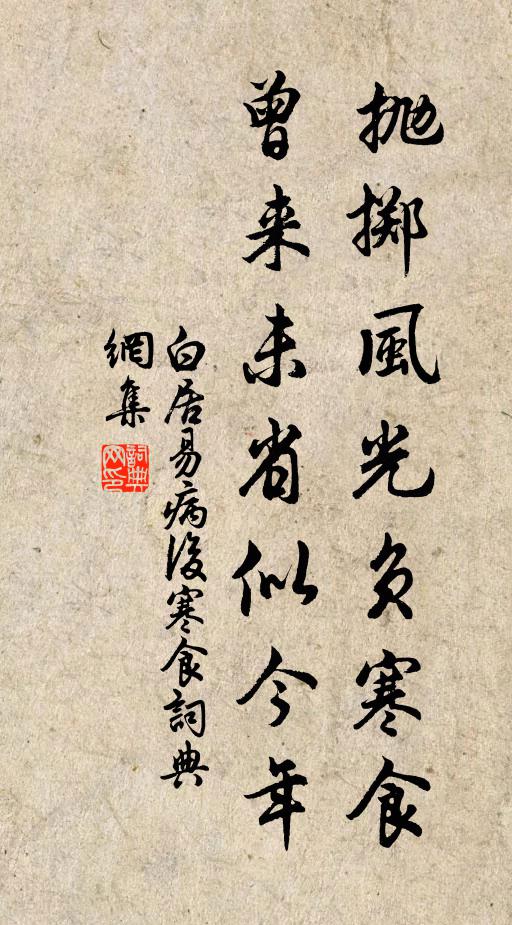 抛掷風光负寒食
曾来未省似今年
白居易病後寒食詞典
網集
詞典網印